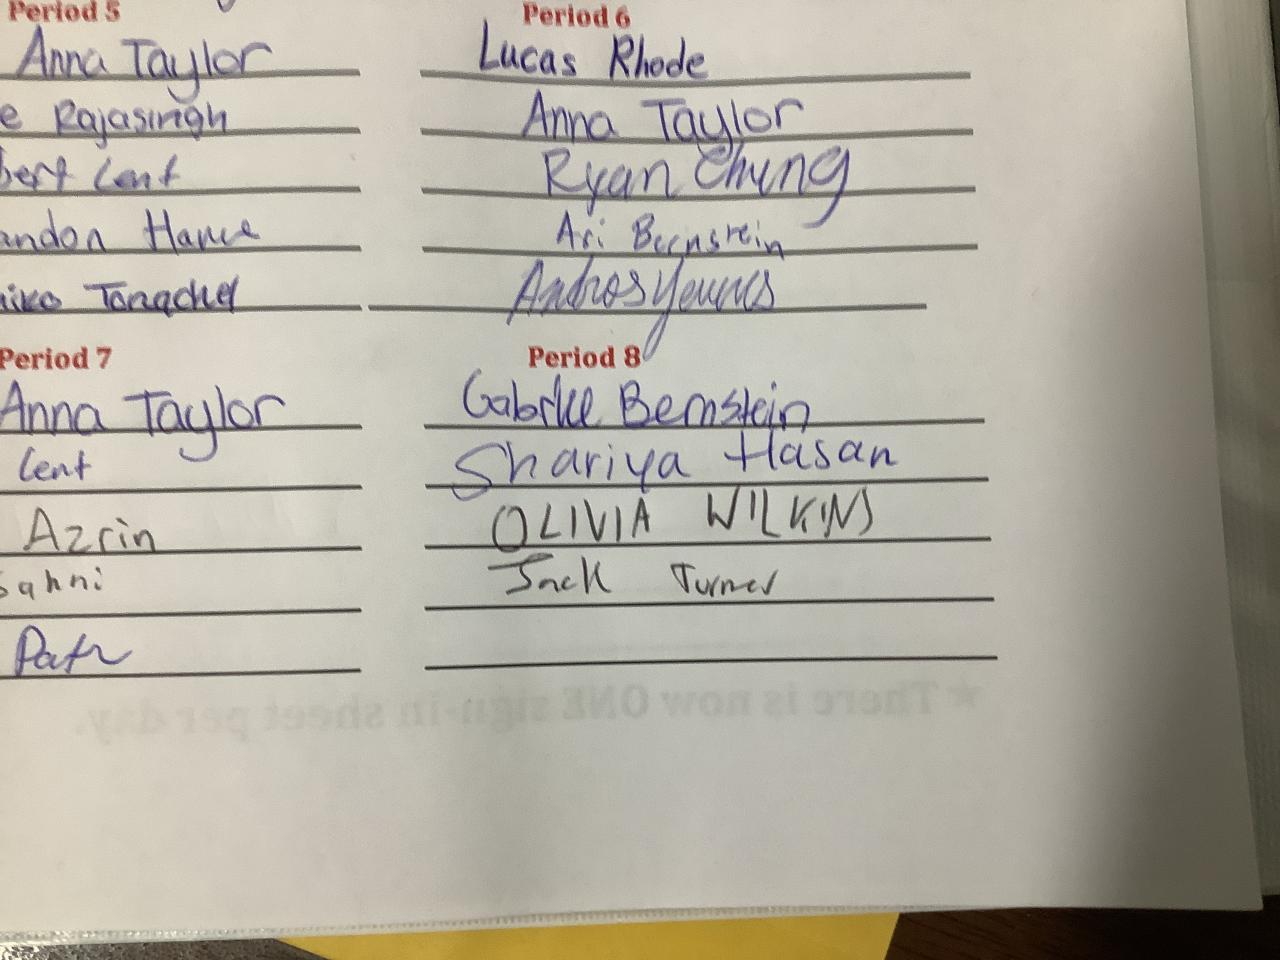 Period 5
Anna Taylor
e Rajasingh
bert Cent
andon
Period 6
Lucas Rhode
Anna Taylor
Ryan Chung
Ari Bernstein
Andros
Period 7
Anna Taylor
Cent
Azrin
Sahni
Period 8
Gabrielle Bernstein
Shariya Hasan
OLIVIA WILKINS
Jack Turner
★ There is now ONE sign-in sheet per day.